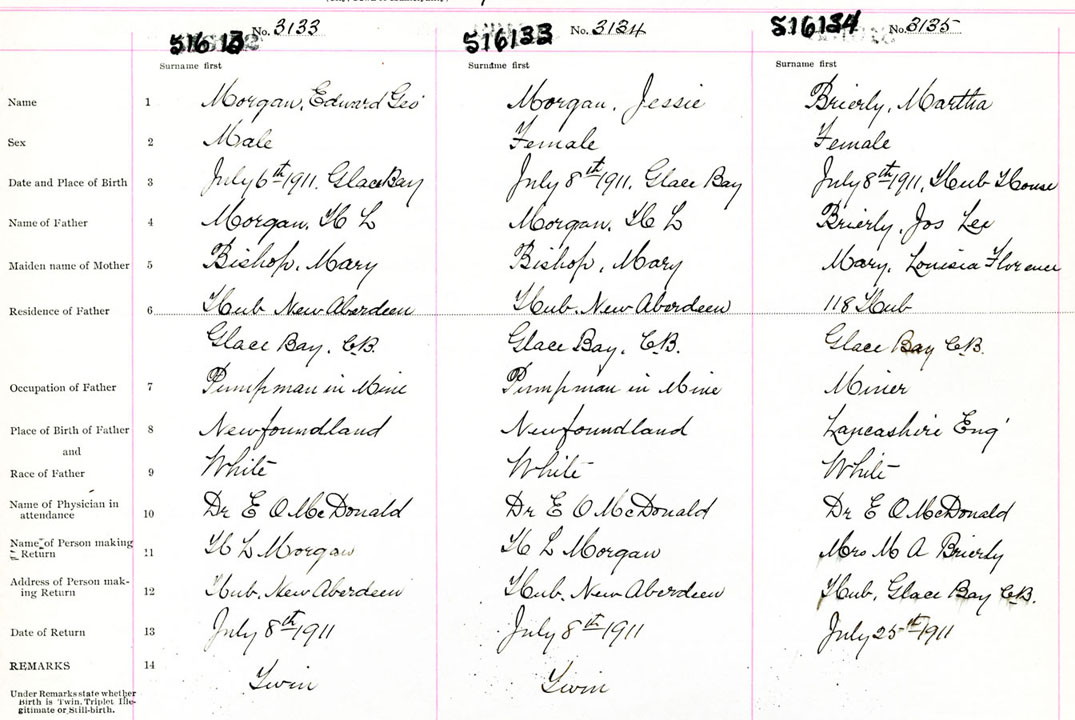 No. 3133 No. 3134 516134 No. 3135
516133
Surname first Surname first Surname first
Name 1 Morgan, Edward Geo Morgan, Jessie Brierly, Martha
Sex 2 Male Female Female
Date and Place of Birth 3 July 6th 1911. Glace Bay July 8th 1911, Glace Bay July 8th 1911, Hub House
Name of Father 4 Morgan, H L Morgan, H L Brierly, Jos Lee
Maiden name of Mother 5 Bishop, Mary Bishop, Mary Mary, Louisia Florence
Residence of Father 6 Hub New Aberdeen Hub. New Aberdeen 118 Hub
Glace Bay, C.B. Glace Bay, C.B. Glace Bay C.B.
Occupation of Father 7 Pumpman in Mine Pumpman in Mine Miner
Place of Birth of Father 8 Newfoundland Newfoundland Lancashire Eng'
and
Race of Father 9 White White White
Name of Physician in
attendance 10 Dr E O McDonald Dr E O McDonald Dr E O McDonald
Name of Person making
Return 11 H L Morgan H L Morgan Mrs M A Brierly
Address of Person mak-
ing Return 12 Hub. New Aberdeen Hub. New Aberdeen Hub, Glace Bay C.B.
Date of Return 13 July 8th 1911 July 8th 1911 July 25th 1911
REMARKS 14 Twin Twin
Under Remarks state whether
Birth is Twin. Triplet Ille-
gitimate or Still-birth.